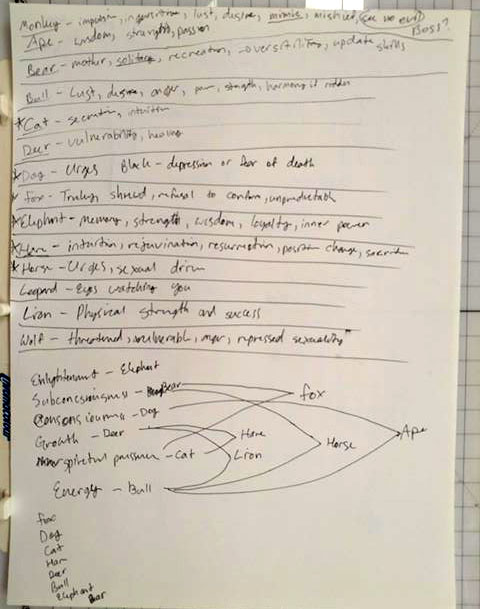 Monkey - impulsive, inquisitive, lust, desire, mimic, mischief, (see no evil) Boss?
Ape - wisdom, strength, passion
Bear - mother, solitary, recreation, oversensitivity, update skills
Bull - Lust, desire, anger, power, strength, harmony if ridden
*Cat - secretive, intuition
Deer - vulnerability, healing
*Dog - Urges Black - depression or fear of death
Fox - Truley shrewd, refusal to conform, unpredictable
*Elephant - memory, strength, wisdom, loyalty, inner power
*Hare - intuition, rejuvination, resurrection, positive change,
*Horse - Urges, sexual drive
Leopard - Eyes watching you
Lion - Physical strength and success
Wolf - threatened, vulnerable, anger, repressed sexuality
Enlightenment - Elephant
Subconsciousness - Bear
Consciousness - Dog
fox
Growth - Deer
Hare
Ape
spiritual - Cat
Lion
Horse
Energy - Bull
fox
Dog
Cat
Hare
Deer
Bull
Elephant
Bear